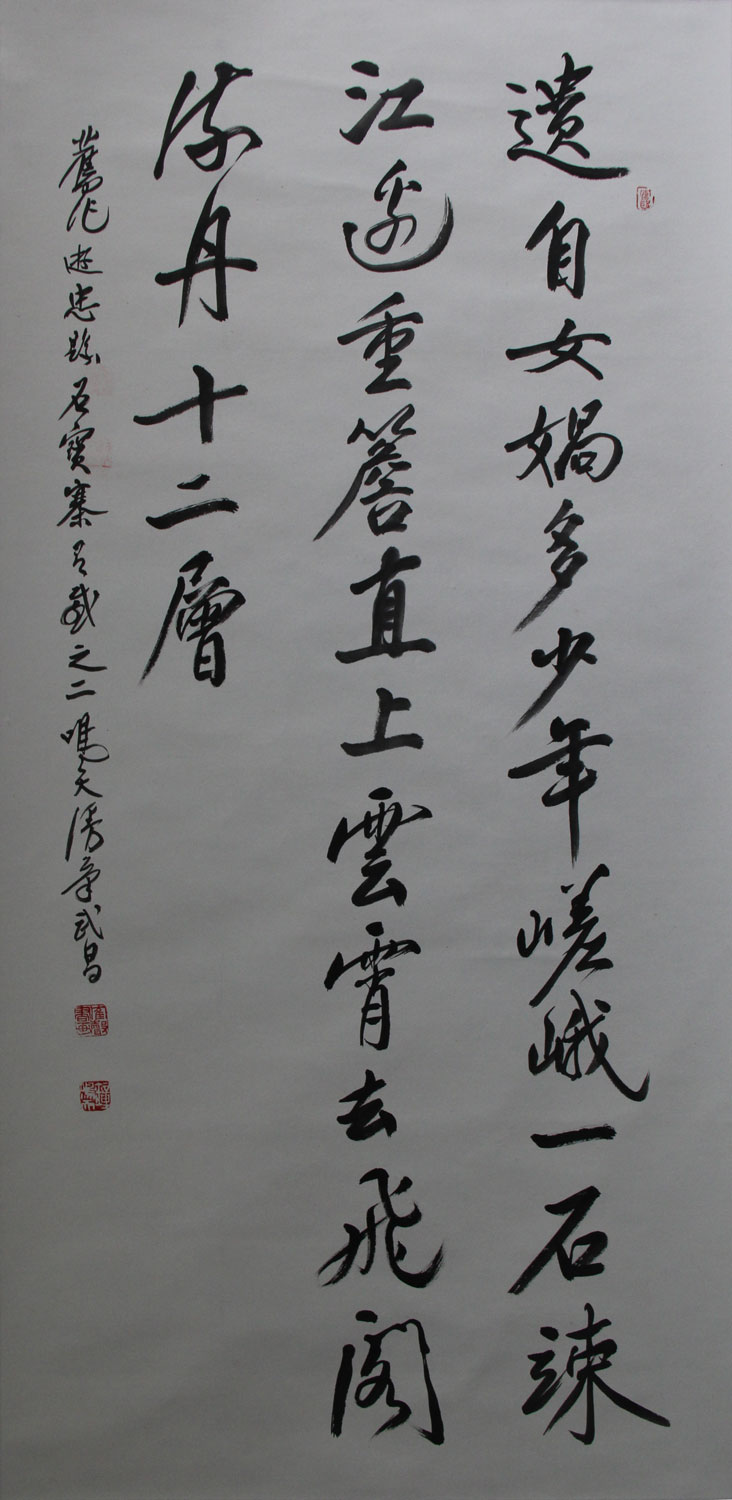 遺自女媧多少年嵯峨一石竦
江邊重簷直上雲霄去飛閣
流丹十二層
舊作遊忠縣石寶寨有感之二鳴天潘章武昌